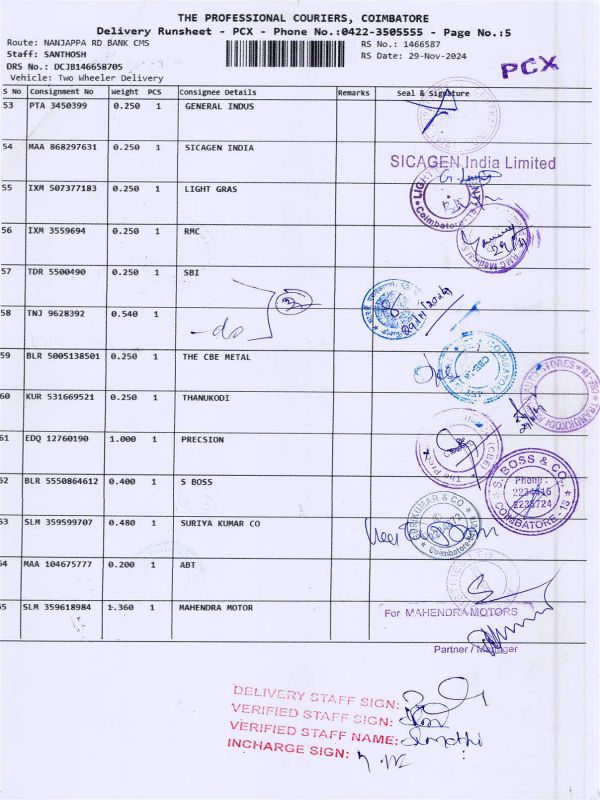 THE PROFESSIONAL COURIERS, COIMBATORE
Delivery Runsheet - PCX - Phone No.:0422-3505555 - Page No.:5
Route: NANJAPPA RD BANK CMS
RS No.: 1466587
Staff: SANTHOSH
RS Date: 29-Nov-2024
DRS No.: DCJB146658705
Vehicle: Two Wheeler Delivery
PCX
S No Consignment No Weight PCS Consignee Details Remarks Seal & Signature
53 PTA 3450399 0.250 1 GENERAL INDUS
54 MAA 868297631 0.250 1 SICAGEN INDIA
SICAGEN India Limited
55 IXM 507377183 0.250 1 LIGHT GRAS
56 IXM 3559694 0.250 1 RMC
57 TDR 5500490 0.250 1 SBI
58 TNJ 9628392 0.540 1
-do-
59 BLR 5005138501 0.250 1 THE CBE METAL
60 KUR 531669521 0.250 1 THANUKODI
61 EDQ 12760190 1.000 1 PRECSION
62 BLR 5550864612 0.400 1 S BOSS
S. BOSS & CO.,
Phone :
COIMBATORE - 13
53 SLM 359599707 0.480 1 SURIYA KUMAR CO
54 MAA 104675777 0.200 1 ABT
55 SLM 359618984 1.360 1 MAHENDRA MOTOR
For MAHENDRA MOTORS
Partner / Manager
DELIVERY STAFF SIGN:
VERIFIED STAFF SIGN:
VERIFIED STAFF NAME:
INCHARGE SIGN: